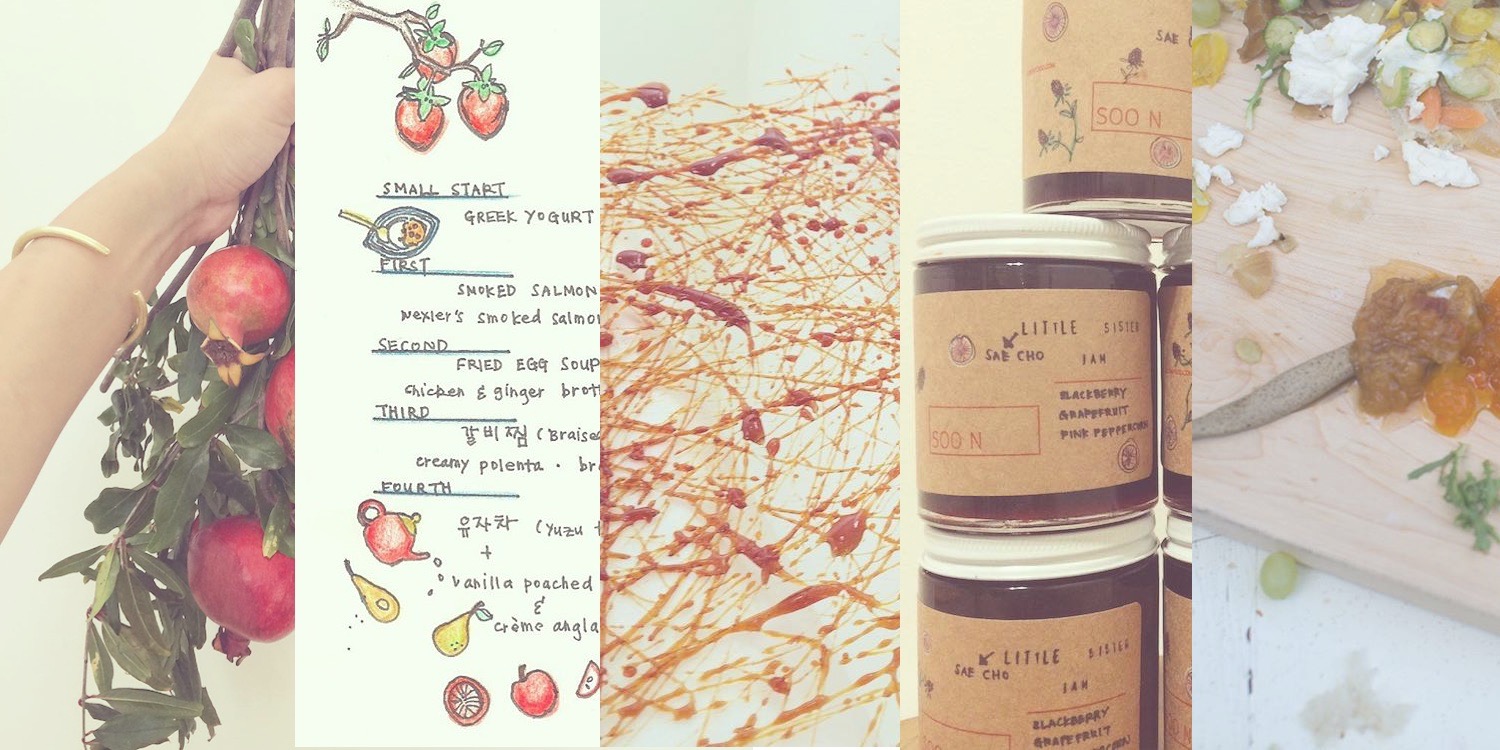 SMALL START
GREEK YOGURT
FIRST
SMOKED SALMON
wexler's smoked salmon
SECOND
FRIED EGG SOUP
chicken & ginger brot
THIRD
갈비찜 (Braise
creamy polenta · br
FOURTH
유자차 (Yuzu t
+
vanilla poached
&
crème angla
SAE
SOO N
LITTLE SISTER
SAE CHO
JAM
BLACKBERRY
GRAPEFRUIT
PINK PEPPERCORN
SOO N
LITTLE SISTER
SAE CHO
JAM
BLACKBERRY
GRAPEFRUIT